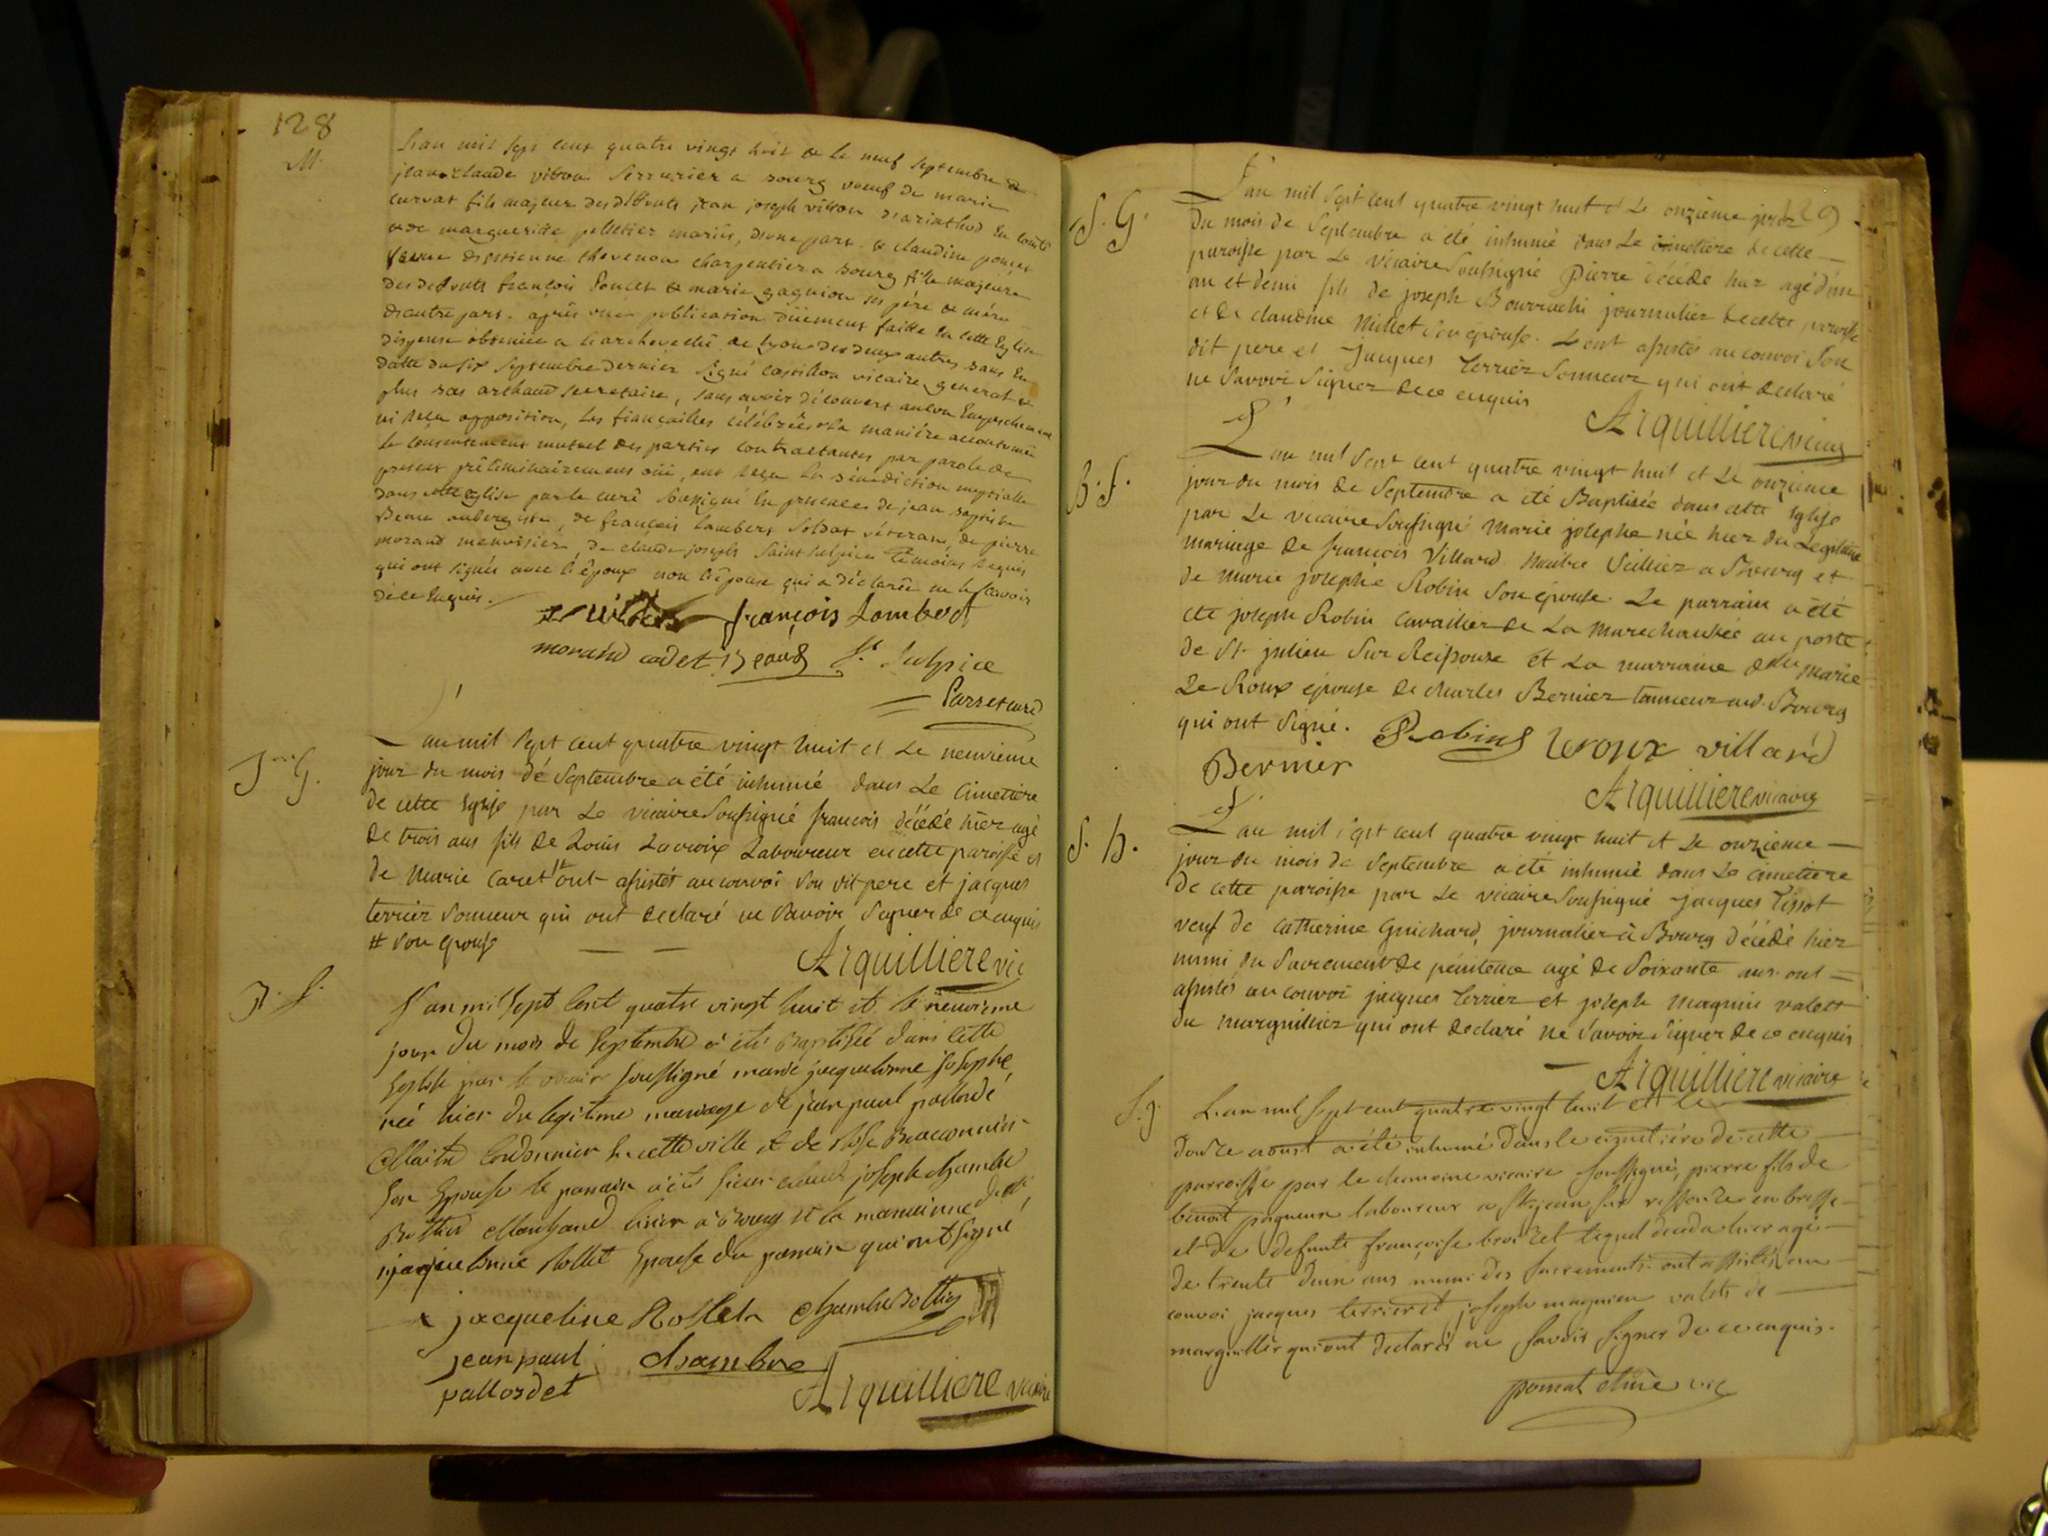 128
M.
L'an mil sept cent quatre vingt huit & le neuf septembre
jean claude vitton serrurier a bourg veuf de marie
curvat fils majeur des défunts jean joseph vitton d'arinthod en comté
& de margueride pelletier mariés, d'une part. & claudine poncet
veuve d'estienne thevenon charpentier a bourg fille majeure
des defunts françois Poncet & marie gagnion ses père & mère
d'autre part. après une publication düement faitte en cette Eglise
dispense obtenüe a l'archeveché de Lyon des deux autres bans en
datte du six septembre dernier signé castillon vicaire general &
plus bas archaud secretaire, sans avoir découvert aucun Empechement
ni reçu opposition, les fiançailles célébrées a la manière accoutumée
le consentement mutuel des parties contractantes par parole de
present préliminairement oüi, ont reçu la bénédiction nuptialle
dans cette Eglise par le curé soussigné En presences de jean baptiste
Beau aubergiste, de françois Lambert soldat véteran, de pierre
morand menuisier, de claude joseph saint sulpice témoins requis
qui ont signés avec l'époux non l'épouse qui a déclarée ne le savoir
de ce Enquis.
françois Lambert
morand cadet Beaud St. Sulpice
curé
J. G.
L'an mil sept cent quatre vingt huit et le neuvieme
jour du mois de Septembre a été inhumé dans Le Cimetiere
de cette Eglise par Le vicaire Soussigné francois décédé hier agé
de trois ans fils de Louis Lacroix Laboureur en cette paroisse et
de Marie Caret # ont assistés au convoi Son dit pere et jacques
terrier Sonneur qui ont declaré ne Savoir Signer de ce enquis
# Son epouse
Arquilliere vic
B. f.
L'an mil sept Cent quatre vingt huit et le neuvieme
jour du mois de Septembre a été Baptisée dans cette
Eglise par le vicaire soussigné marie jacquelinne josephe
née hier du legitime mariage de jean paul pallordé
Maitre Cordonnier de cette ville et de Rose
son Epouse le parrain a été sieur claude joseph chambre
Bottier Marchand a Bourg et la marainne
jacquelinne Rollet Epouse du parrain qui ont signé
jacqueline Rollet chambre Bottier
jean paul chambre
pallordet
Arquilliere vicaire
129
S. G.
L'an mil sept cent quatre vingt huit et Le onzieme jour
du mois de Septembre a été inhumé dans Le cimetiere de cette
paroisse par Le vicaire Soussigné Pierre décédé hier agé d'un
an et demi fils de joseph Bourrachi journalier de cette paroisse
et de claudine Millet son epouse. Sont assistés au convoi Son
dit pere et Jacques terrier Sonneur qui ont declaré
ne Savoir Signer de ce enquis
Arquilliere vicaire
B. f.
L'an mil sept cent quatre vingt huit et Le onzieme
jour du mois de Septembre a été Baptisée dans cette Eglise
par Le vicaire Soussigné Marie josephe née hier du Legitime
mariage de francois Villard Maitre Sellier a Bourg et
de Marie josephe Robin Son épouse. Le parrain a été
été joseph Robin Cavailier de La Marechaussée au poste
de St julien Sur Reissouze et La marraine dlle Marie
Le Roux épouse de charles Bernier tanneur aud. Bourg
qui ont Signé. Robins leroux villard
Bernier
Arquilliere vicaire
S. h.
L'an mil sept cent quatre vingt huit et Le onzieme
jour du mois de Septembre a été inhumé dans Le Cimetiere
de cette paroisse par Le vicaire Soussigné Jacques tissot
veuf de Catherine Guichard, journalier à Bourg décédé hier
muni du Sacrement de pénitence agé de Soixante ans ont
assistés au convoi jacques terrier et joseph Magnin valets
du Marguillier qui ont declaré ne Savoir Signer de ce enquis
Arquilliere vicaire
S. J.
L'an mil sept cent quatre vingt huit et le
douze aoust a été inhumé dans le cimetière de cette
parroisse par le chanoine vicaire soussigné, pierre fils de
benoit laboureur a St jean sur ressouze en bresse
et de defunte françoise lequel deceda hier agé
de trente deux ans muni des sacrements. ont assistés au
convoi jacques terrier et joseph magnien valets de
marguillier qui ont declaré ne savoir signer de ce enquis.
vic